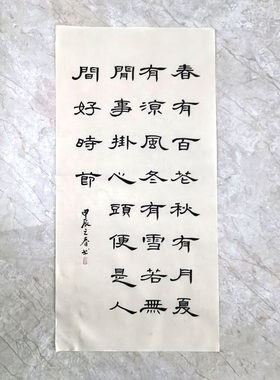 春有百花秋有月夏
有凉風冬有雪若無
閒事掛心頭便是人
間好時節
甲辰之春书